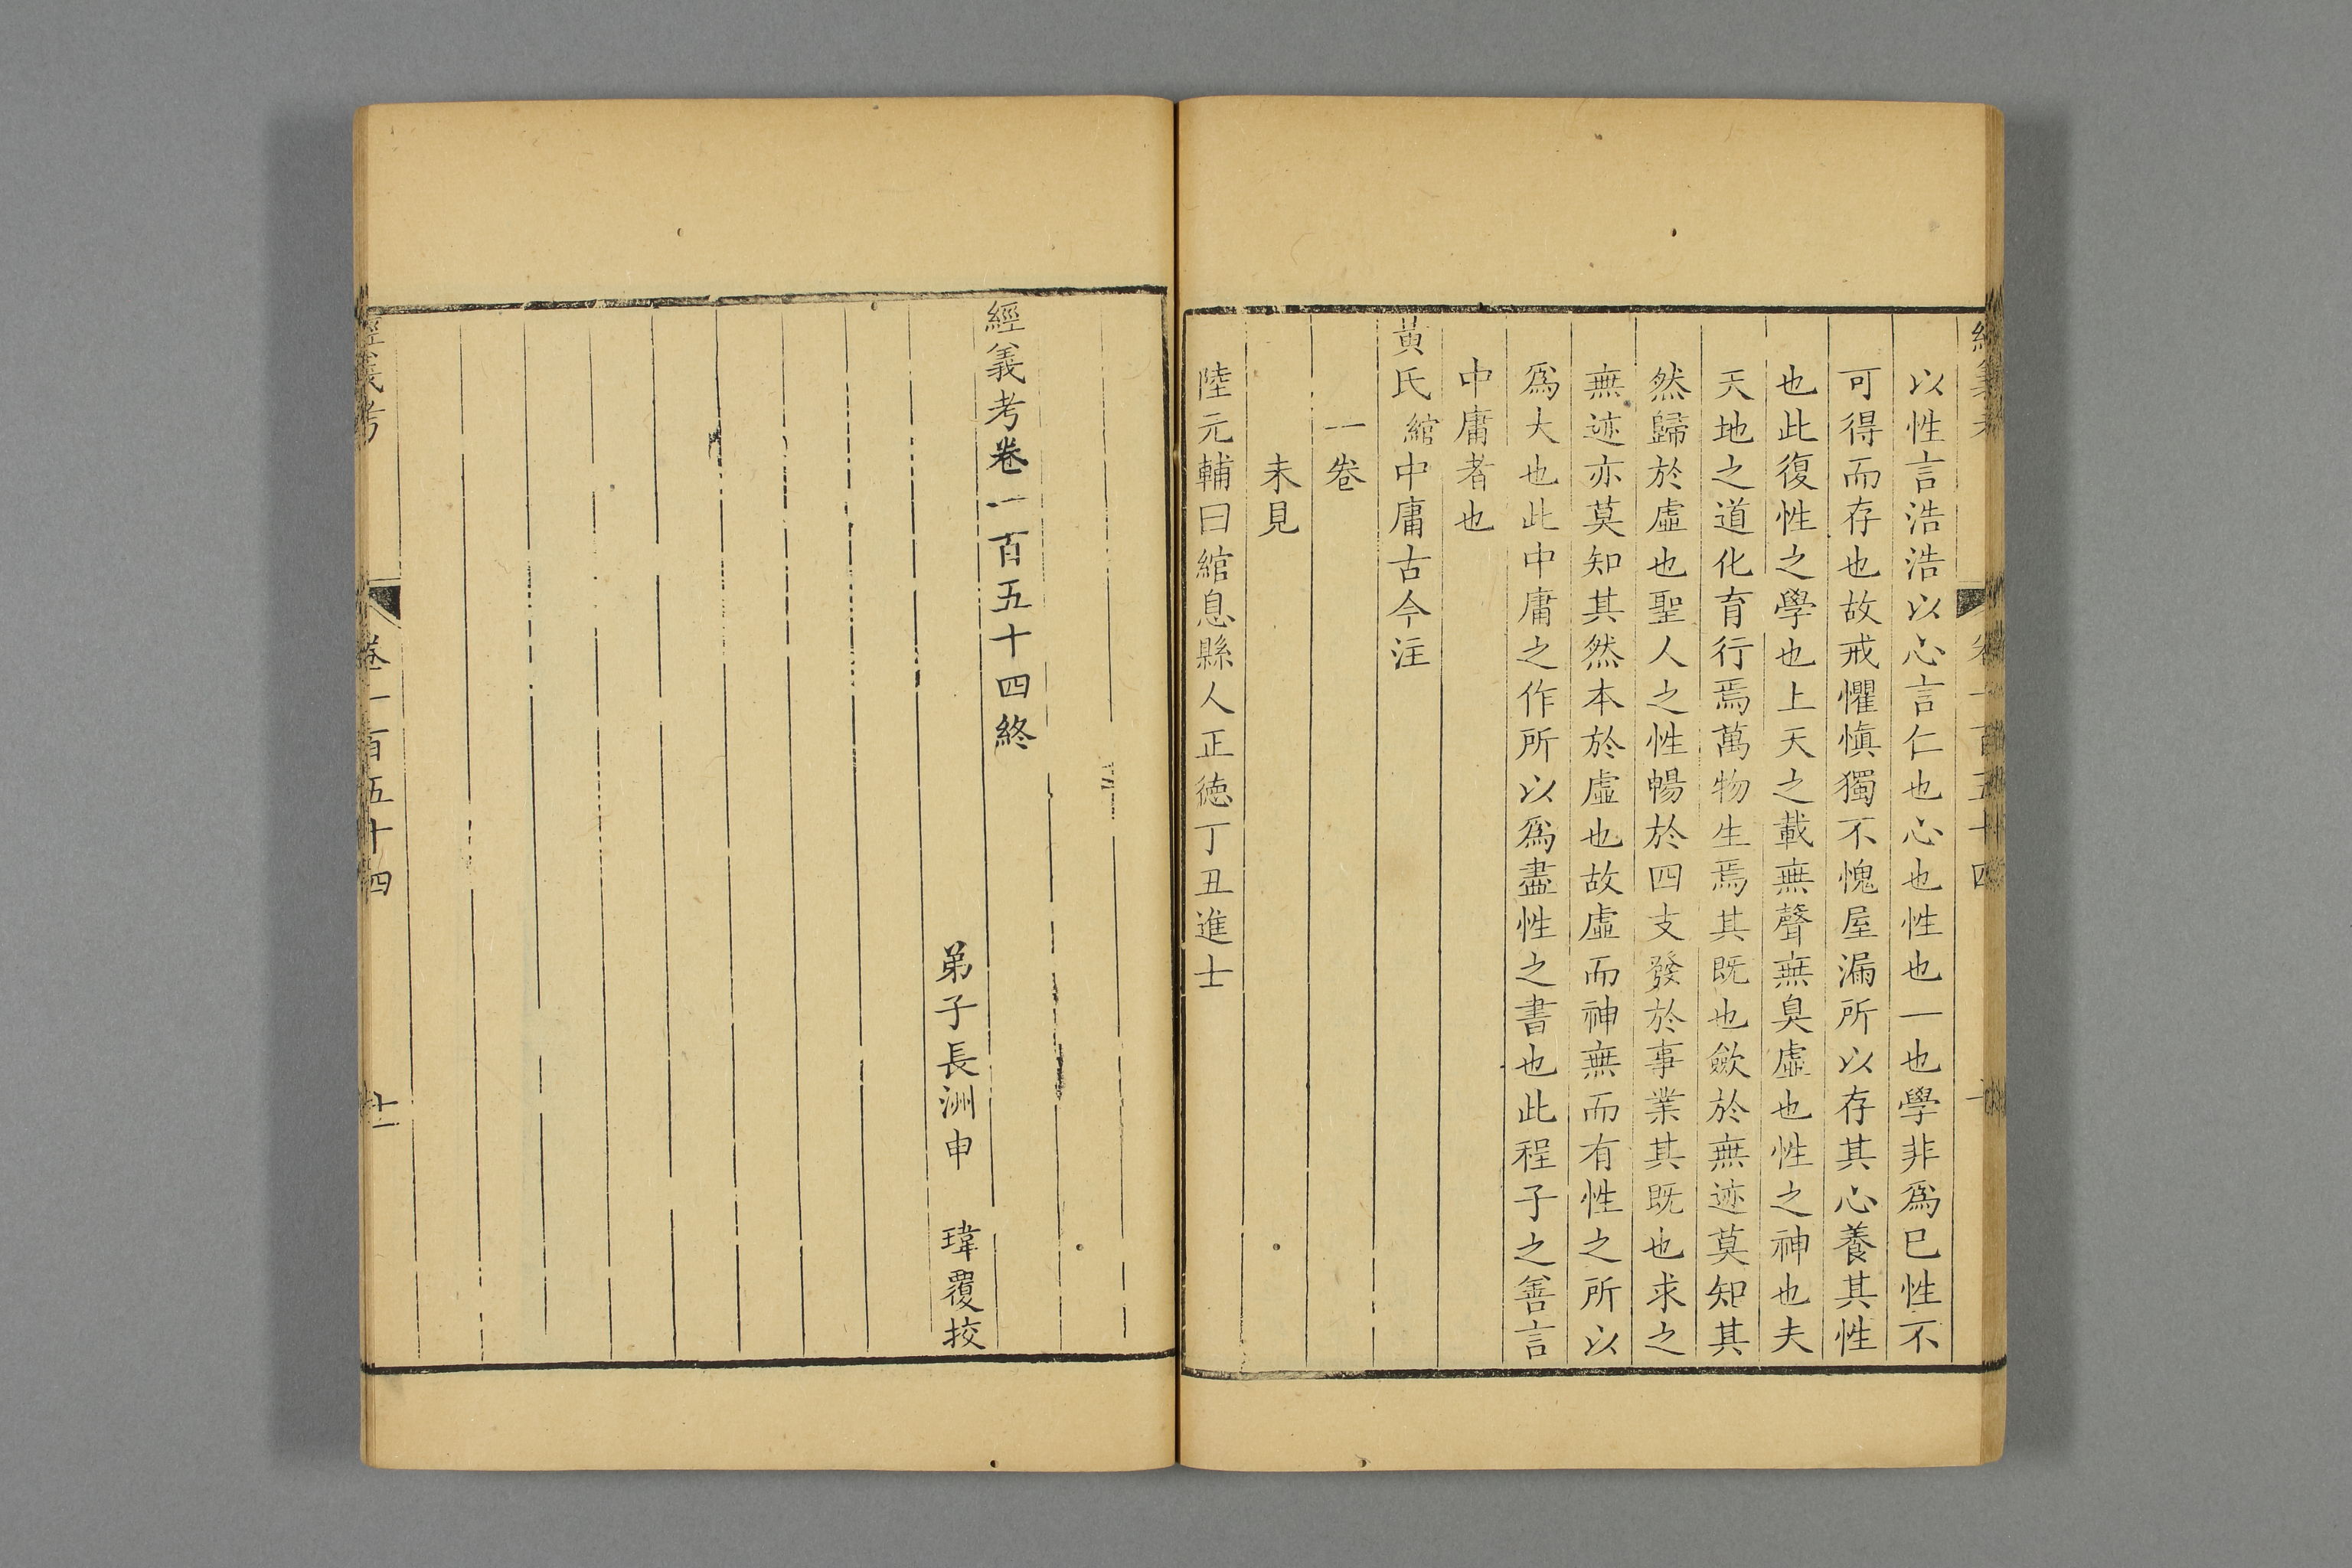 以性言浩浩以心言仁也心也性也一也學非爲已性不
可得而存也故戒懼愼獨不愧屋漏所以存其心養其性
也此復性之學也上天之載無聲無臭虛也性之神也夫
天地之道化育行焉萬物生焉其既也歛於無迹莫知其
然歸於虛也聖人之性暢於四支發於事業其既也求之
無迹亦莫知其然本於虛也故虛而神無而有性之所以
爲大也此中庸之作所以爲盡性之書也此程子之善言
中庸者也
黃氏綰中庸古今注
一卷
未見
陸元輔曰綰息縣人正德丁丑進士
經義考卷一百五十四終
弟子長洲申 瑋覆挍
經義考 卷一百五十四 十一